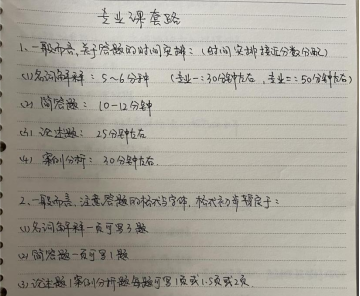 专业课套路
1、一般而言,关于答题的时间安排:(时间安排接近分数分配)
(1)名词解释:5~6分钟 (专业一:30分钟左右,专业二:50分钟左右)
(2) 简答题:10-12分钟
(3) 论述题:25分钟左右
(4) 案例分析:30分钟左右.
2、一般而言,注意答题的格式与字体,格式
(1)名词解释一页可写3题
(2)简答题一页可写1题
(3)论述题/案例分析题每题可写1页或1.5页或2页.